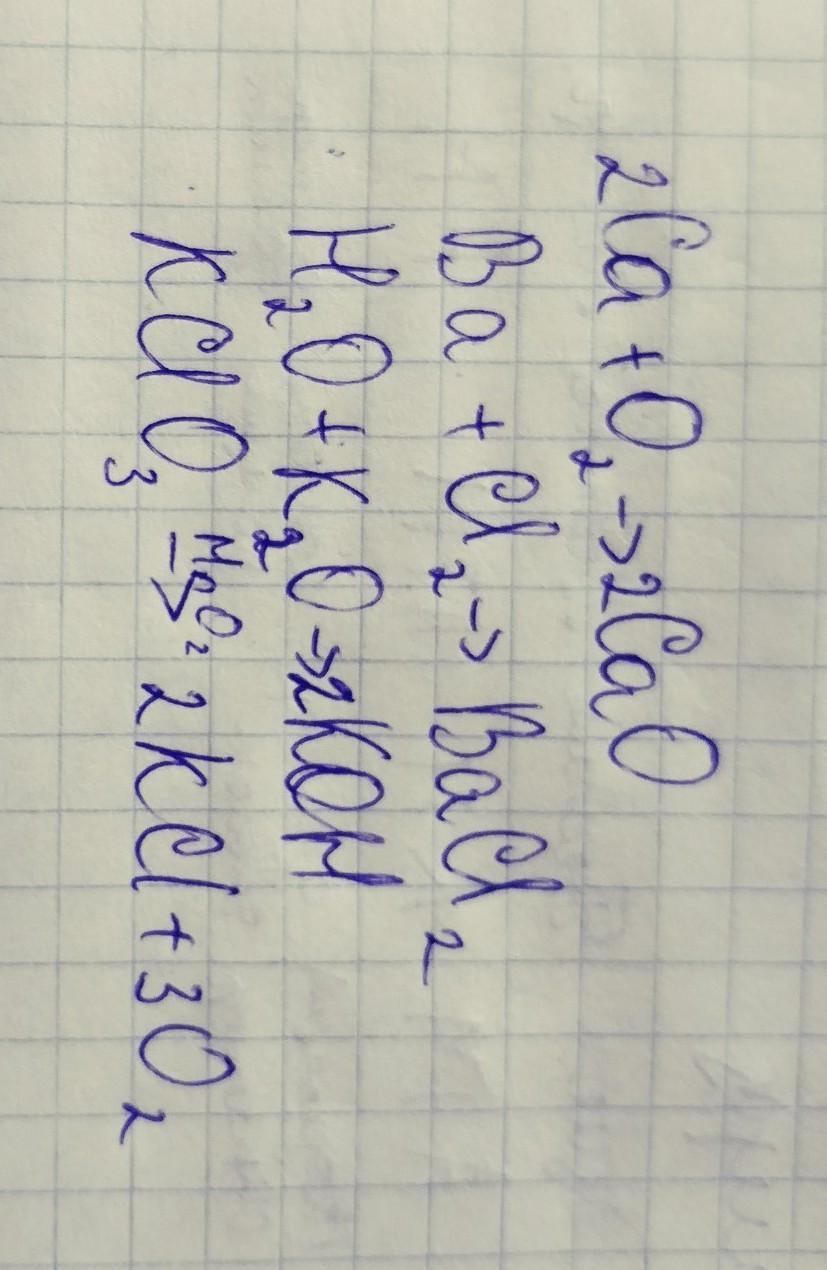 2Ca + O₂ → 2CaO
Ba + Cl₂ → BaCl₂
H₂O + K₂O → 2KOH
KClO₃ MnO₂ → 2KCl + 3O₂